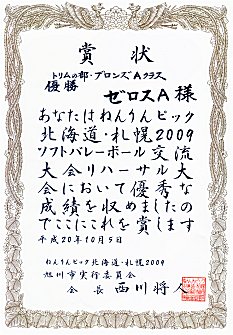 賞状
トリムの部・ブロンズAクラス
優勝
ゼロスA 様
あなたはねんりんピック
北海道・札幌2009
ソフトバレーボール交流
大会リハーサル大
会において優秀な
成績を収めましたの
でここにこれを賞します
平成20年10月5日
ねんりんピック北海道・札幌2009
旭川市実行委員会
会長 西川将人